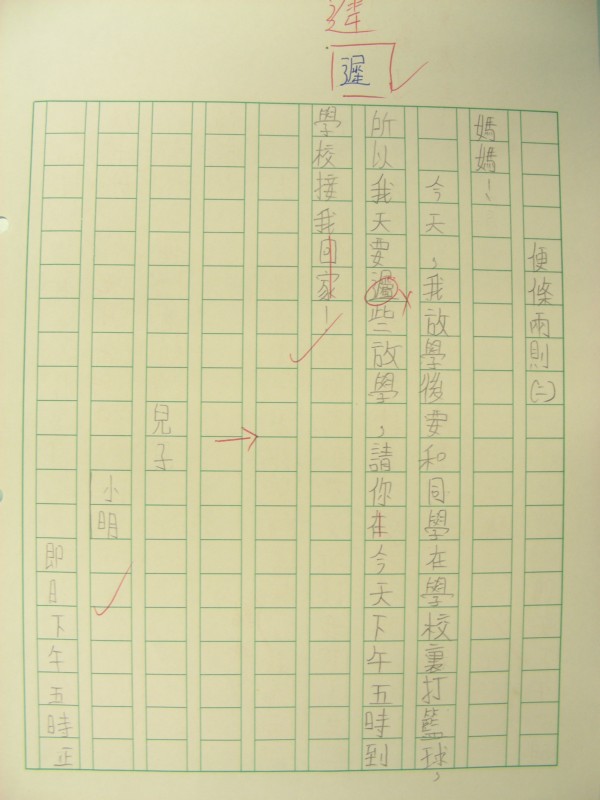 遲
便條兩則(二)
媽媽!
今天,我放學後要和同學在學校裏打籃球,
所以我天要些放學,請你在今天下午五時到
學校接我回家!
兒子
小明
即日下午五時正